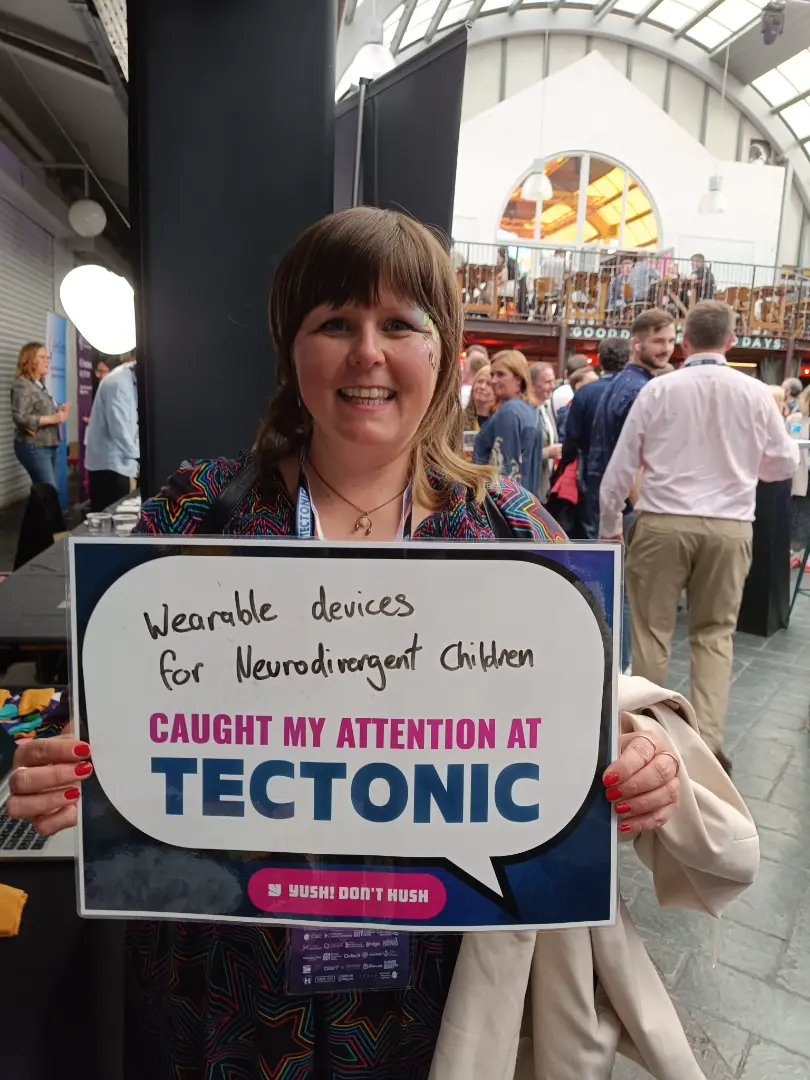 TECTONIC
GOOD DAYS
Wearable devices
for Neurodivergent Children
CAUGHT MY ATTENTION AT
TECTONIC
YUSH! DON'T HUSH